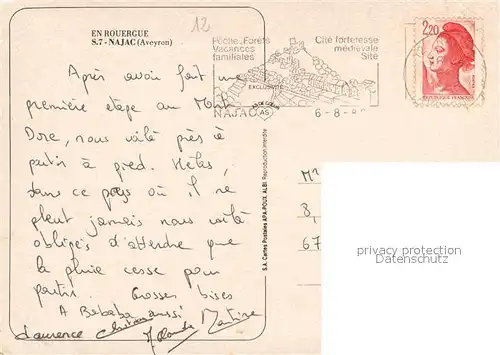 12
EN ROUERGUE
S.7 - NAJAC (Aveyron)
Après avoir fait une
première étape au Mont
Dore, nous voilà près à
partir à pied. Hélas,
dans ce pays où il ne
pleut jamais nous voilà
obligés d'attendre que
la pluie cesse pour
partir. Grosses bises
A Bebaba aussi
Laurence Martine
S.A. Cartes Postales APA-POUX, ALBI Reproduction interdite
Pêche, Forêts
Vacances
familiales
Cité forteresse
médiévale
Site
EXCLUSIVITÉ
AS DE CŒUR
AS
NAJAC
6-8-
2,20
REPUBLIQUE FRANÇAISE
8,
67
privacy protection
Datenschutz